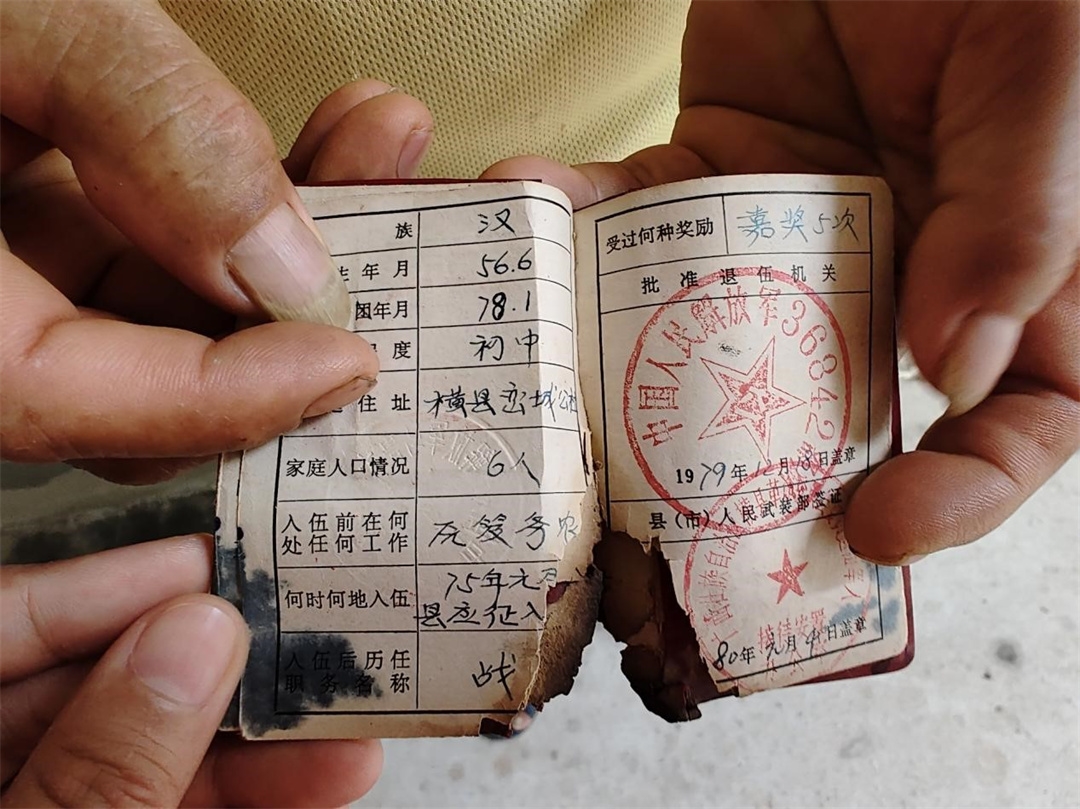 族 汉
年月 56.6
团年月 78.1
度 初中
住址 横县峦城公社
家庭人口情况 6人
入伍前在何处任何工作 在家务农
何时何地入伍 75年元月
县应征入
入伍后历任职务名称 战
受过何种奖励 嘉奖5次
批准退伍机关
中国人民解放军36842
1979年12月 日盖章
县(市)人民武装部签证
80年元月4日盖章